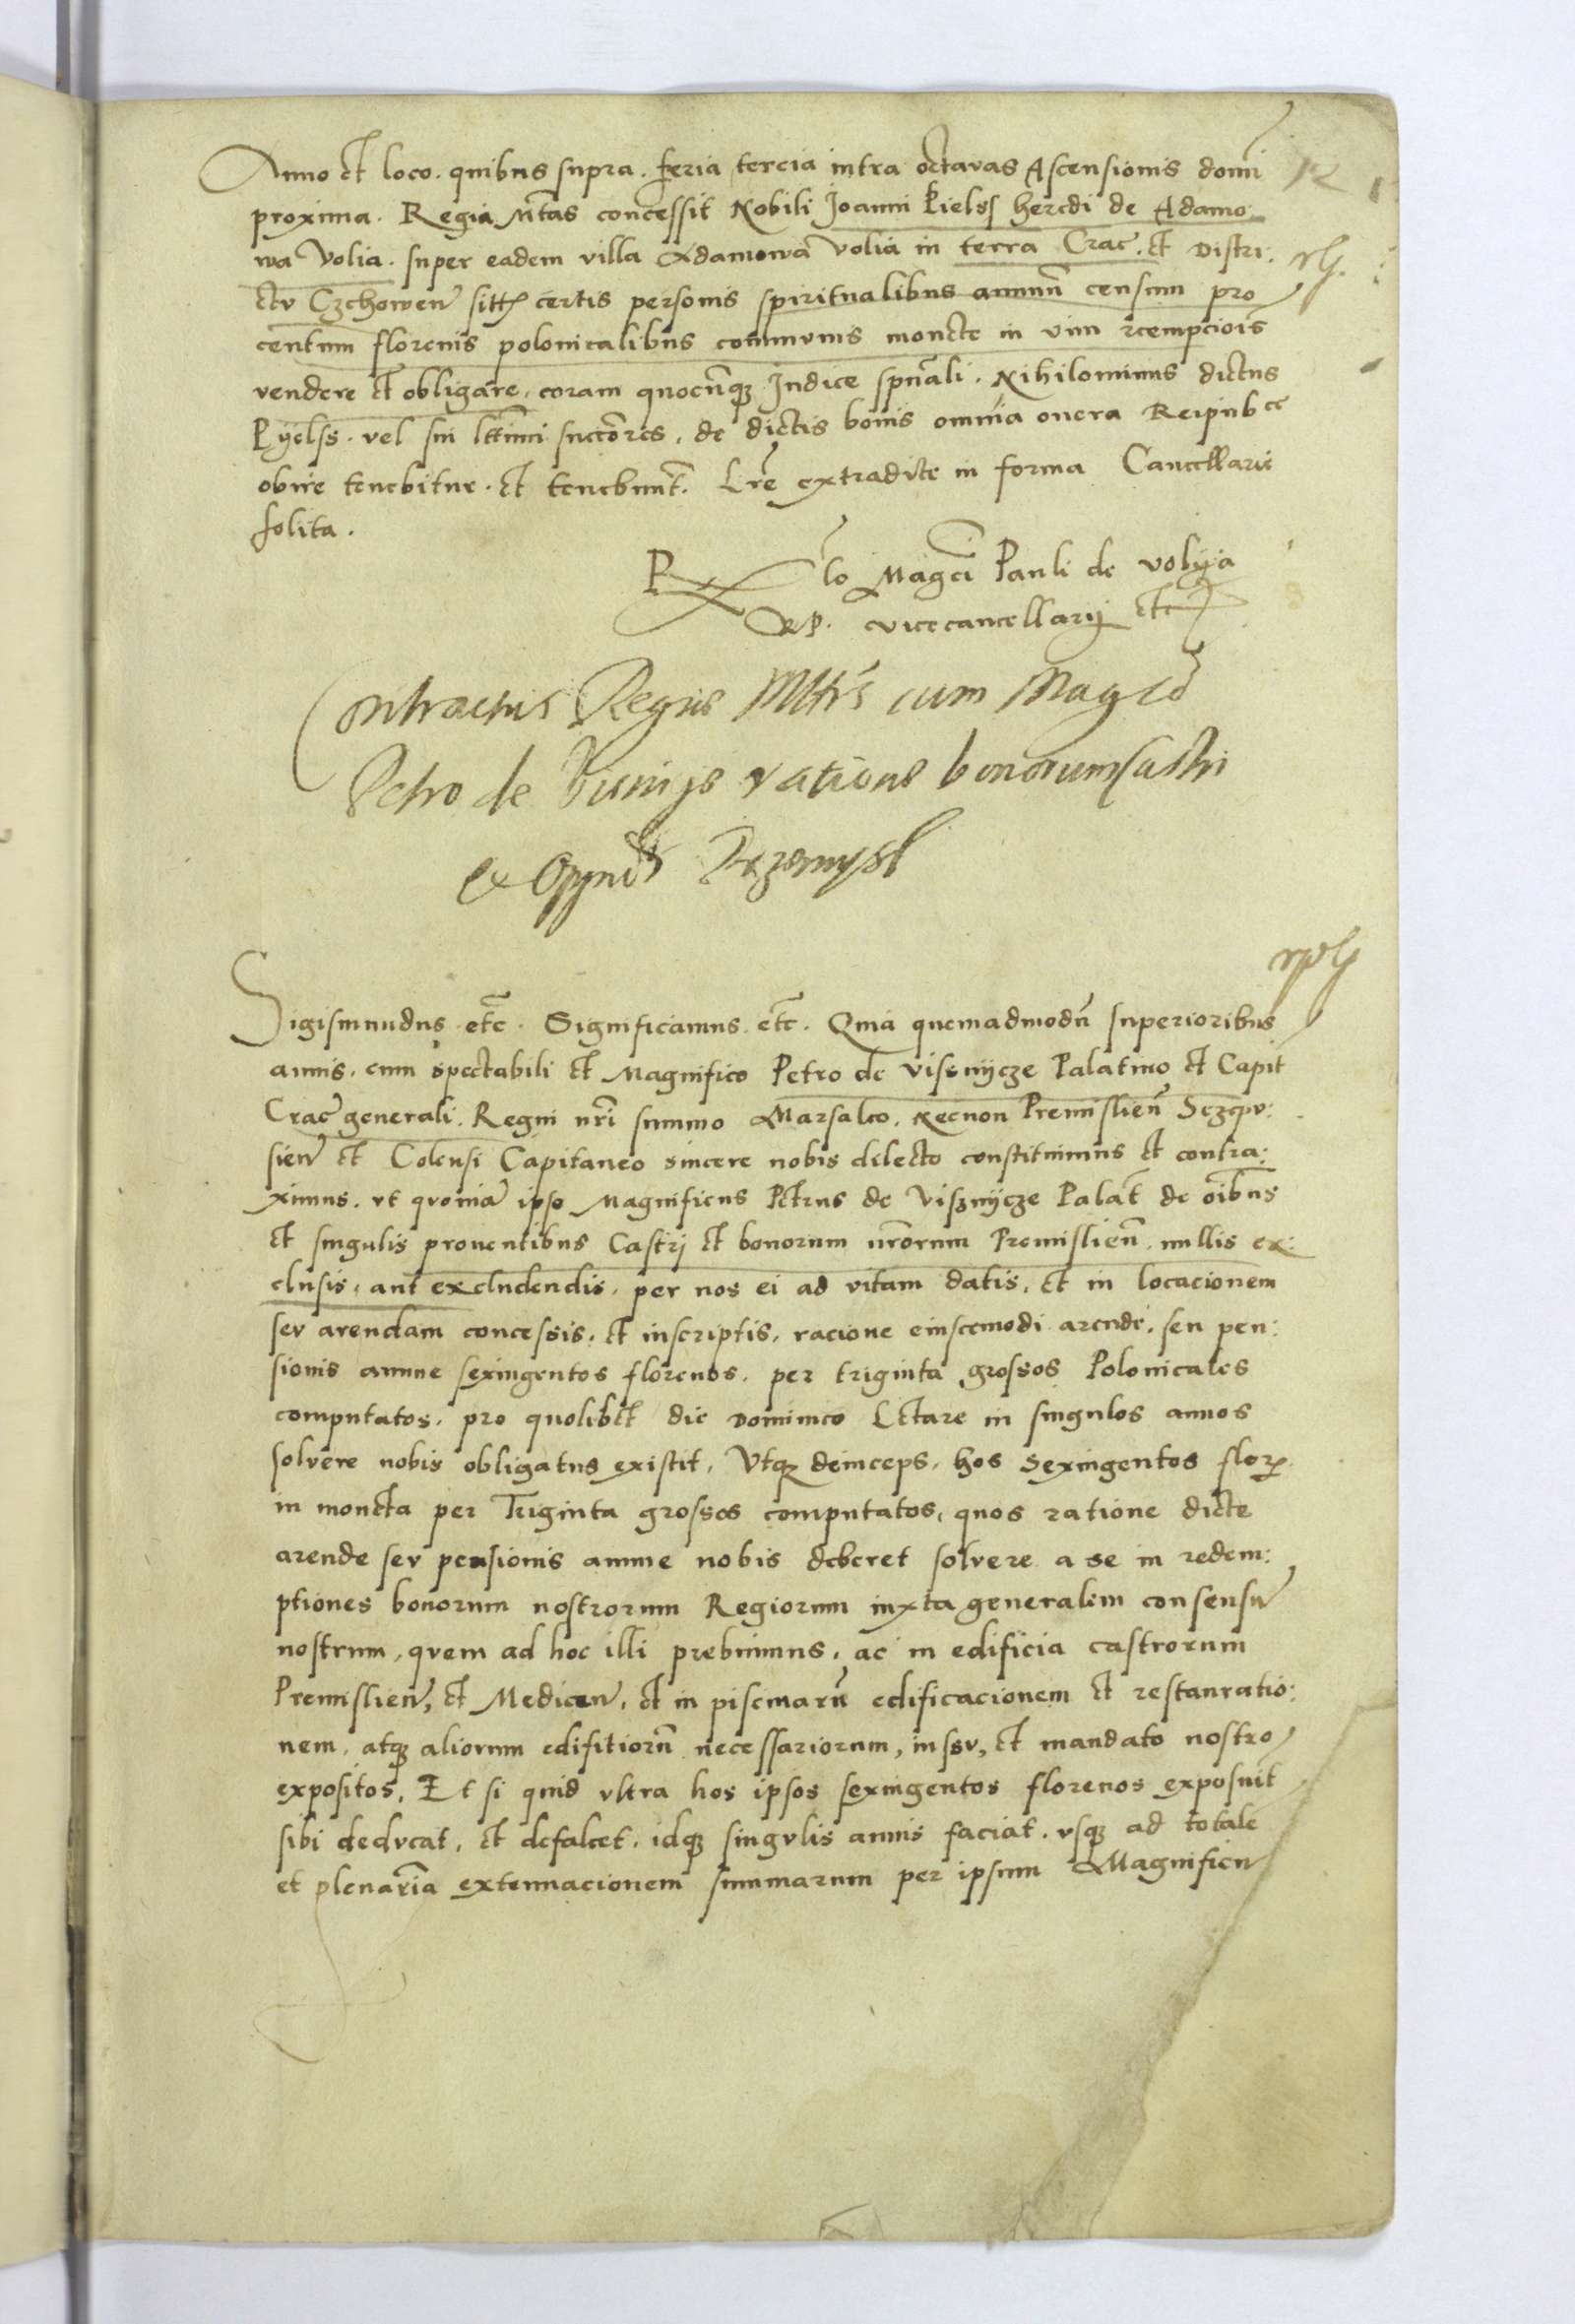 Anno et loco quibus supra. feria tercia intra octavas Ascensionis domī
proxima. Regia Mtas concessit Nobili Joanni Pielss heredi de Adamo
wa Volia. super eadem villa Adamowa Volia in terra Crac̄. et Distri:
ctv Czchowen̄ sitt certis personis spiritualibus annuū censum pro
centum florenis polonicalibus communis monete in vim reempciōis
vendere et obligare, coram quocūqz Judice spūali. Nihilominus dictus
Pyelss. vel sui lttimi succōres, de dictis bonis omnia onera Reipub ce
obire tenebitur. et tenebunt̄. Lrē extradite in forma Cancellarie
solita.
R lo Magci Pauli de Volya
R P. vicecancellarij etc
Contractus Regie Mttis cum Magco
Petro de Visnijc ratione bonorum castri
Przemysl
Sigismundus etc̄. Significamus etc̄. Quia quemadmodū superioribus
annis, cum spectabili et Magnifico Petro de Visnijcze Palatino et Capit
Crac̄ generali. Regni nr̄i summo Marsalco. Necnon Premislien̄ Sczepv:
sien̄ et Colensi Capitaneo sincere nobis dilecto constituimus et contra:
ximus. vt qvoniā ipse Magnificus Petrus de Viszniycze Palat̄ de oībus
et singulis prouentibus Castrj et bonorum nrōrum Premislien̄. nullis ex:
clusis, aut excludendis, per nos ei ad vitam datis, et in locacionem
sev arendam concessis, et inscriptis, racione eiuscemodi arende, seu pen:
sionis annue sexingentos florenos, per triginta grossos Polonicales
computatos, pro quolibet die Dominico Letare in singulos annos
solvere nobis obligatus existit, Vtqz deinceps, hos Sexingentos flor
in moneta per Triginta grossos computatos, quos ratione dicte
arende sev pensionis annue nobis deberet solvere a se in redem:
ptiones bonorum nostrorum Regiorum iuxta generalem consensū
nostrum, qvem ad hoc illi prebuimus, ac in edificia castrorum
Premislien̄, et Medicen̄, et in piscinarū edificacionem et restauratio:
nem, atqz aliorum edifitiorū necessariorum, iussv, et mandato nostro
expositos, Et si quid vltra hos ipsos sexingentos florenos exposuit
sibi dedvcat, et defalcet, idqz singvlis annis faciat, vsqz ad totale
et plenariā extenuacionem summarum per ipsum Magnificū